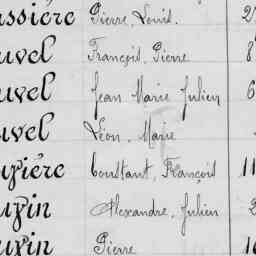 ssière Pierre, Louis. 2
uvel François, Pierre 8
uvel Jean Marie Julien 6
uvel Léon, Marie
ière Constant, François 11
in Alexandre, Julien 2
in Pierre 1